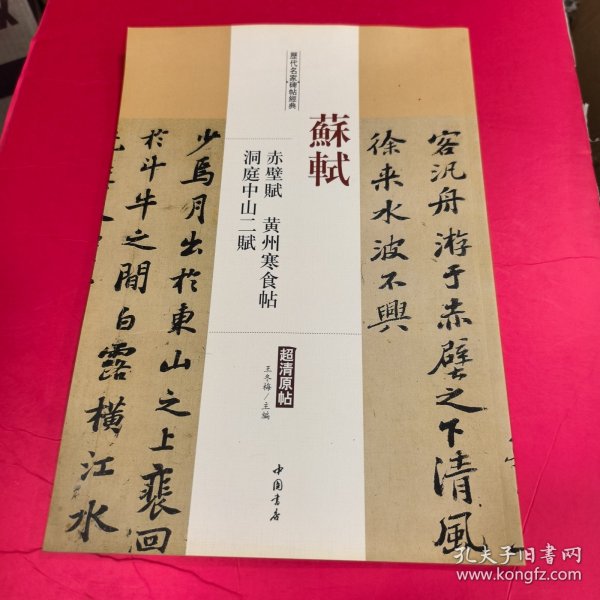 歷代名家碑帖經典
蘇軾
赤壁賦 黃州寒食帖
洞庭中山二賦
超清原帖
王冬梅/主編
中国書店
客汎舟游于赤壁之下清風
徐来水波不興
少焉月出於東山之上裴回
於斗牛之間白露橫江水
孔夫子旧書网
www.kongfz.com